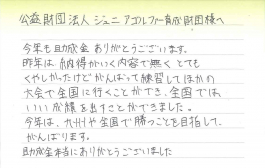 公益財団法人 ジュニアゴルファー育成財団様へ
今年も助成金ありがとうございます。
昨年は納得がいく内容で無くとても
くやしかったけどがんばって練習してほかの
大会で全国に行くことができ、全国では、
いい成績を出すことができました。
今年は、九州や全国で勝つことを目指して、
がんばります。
助成金本当にありがとうございました